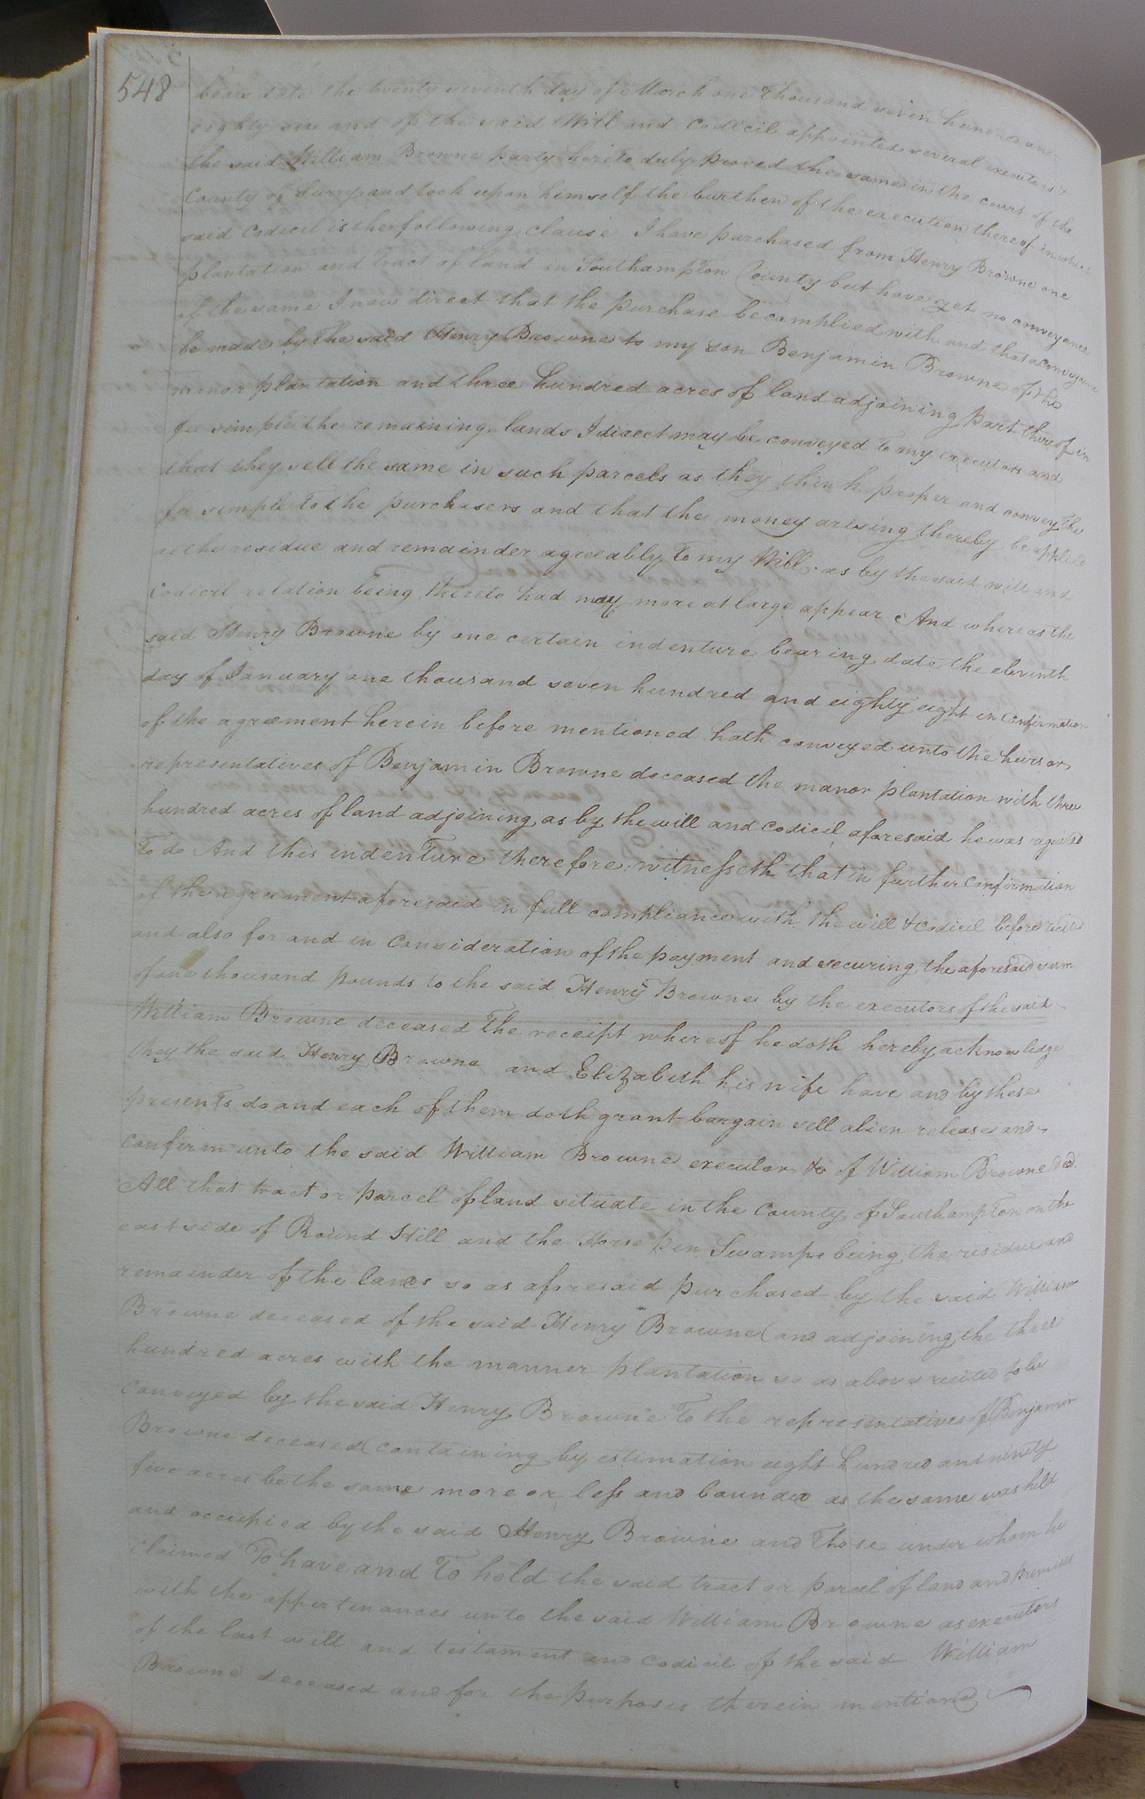 548
bears date the twenty seventh day of March one thousand seven hundred and
eighty six and of the said Will and Codicil appointed several executors &
the said William Browne party hereto duly proved the same in the court of the
County of Surry and took upon himself the burthen of the execution thereof in which
said Codicil is the following clause I have purchased from Henry Browne one
plantation and tract of land in Southampton County but have yet no conveyance
of the same I now direct that the purchase be complied with and that a conveyance
be made by the said Henry Browne to my son Benjamin Browne of the
manor plantation and three hundred acres of land adjoining part thereof in
fee simple the remaining lands I direct may be conveyed to my executors and
that they sell the same in such parcels as they think proper and convey the
fee simple to the purchasers and that the money arising thereby be applied
as the residue and remainder agreeably to my Will as by the said will and
Codicil relation being thereto had may more at large appear And whereas the
said Henry Browne by one certain indenture bearing date the eleventh
day of January one thousand seven hundred and eighty eight in confirmation
of the agreement herein before mentioned hath conveyed unto the heirs or
representatives of Benjamin Browne deceased the manor plantation with three
hundred acres of land adjoining as by the will and codicil aforesaid he was required
to do And this indenture therefore witnesseth that in further confirmation
of the agreement aforesaid in full compliance with the will & codicil before recited
and also for and in consideration of the payment and securing the aforesaid sum
of one thousand pounds to the said Henry Browne by the executors of the said
William Browne deceased The receipt whereof he doth hereby acknowledge
they the said Henry Browne and Elizabeth his wife have and by these
presents do and each of them doth grant bargain sell alien release and
confirm unto the said William Browne executor &c of William Browne decd.
All that tract or parcel of land situate in the County of Southampton on the
east side of Round Hill and the Horse pen Swamps being the residue and
remainder of the lands so as aforesaid purchased by the said William
Browne deceased of the said Henry Browne (and adjoining the three
hundred acres with the manner plantation so as above recited to be
conveyed by the said Henry Browne to the representatives of Benjamin
Browne deceased) containing by estimation eight hundred and ninety
five acres be the same more or less and bounded as the same was held
and occupied by the said Henry Browne and those under whom he
claimed To have and To hold the said tract or parcel of land and premises
with the appertinances unto the said William Browne as executors
of the last will and testament and codicil of the said William
Browne deceased and for the purposes therein mentioned